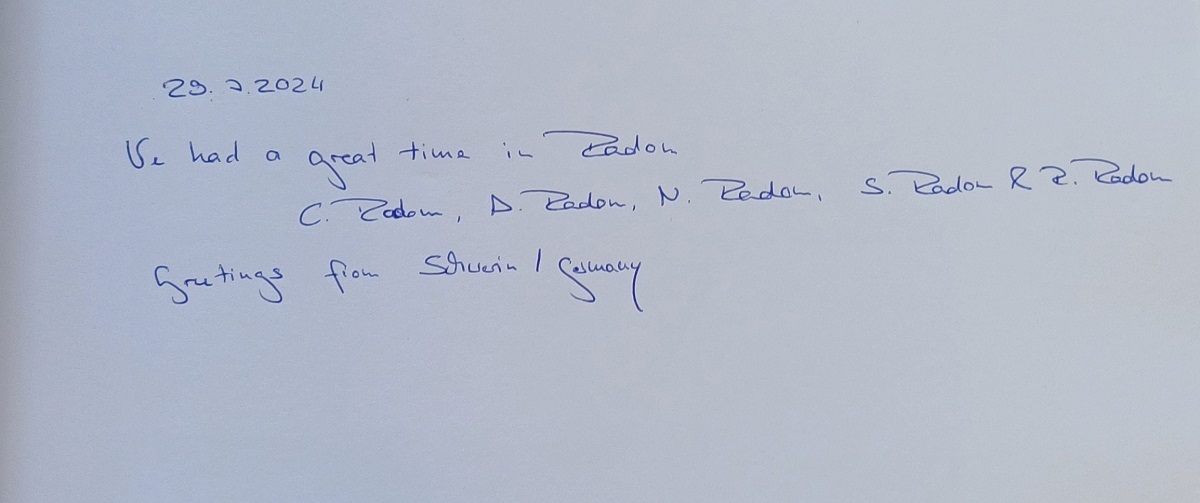 29.7.2024
We had a great time in Radom
C. Radom, D. Radom, N. Radom, S. Radom & R. Radom
Greetings from Schwerin / Germany